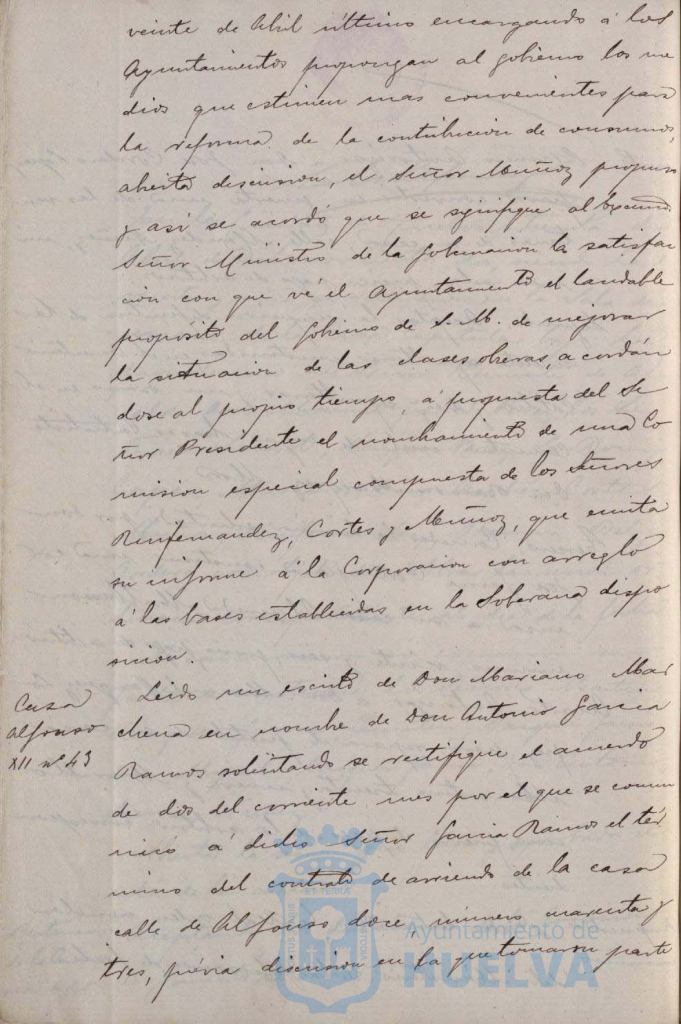 veinte de Abril último encargando á los
Ayuntamientos propongan al gobierno los me
dios que estimen mas convenientes para
la reforma de la contribucion de consumos,
abierta discusion, el Señor Muñoz propuso
y asi se acordó que se signifique al Excmo.
Señor Ministro de la Gobernacion la satisfac
cion con que vé el Ayuntamiento el laudable
propósito del Gobierno de S. M. de mejorar
la situacion de las clases obreras, acordán
dose al propio tiempo, á propuesta del Se
ñor Presidente el nombramiento de una Co
mision especial compuesta de los Señores
Ruifernandez, Cortes y Muñoz, que emita
su informe á la Corporacion con arreglo
á las bases establecidas en la Soberana dispo
sicion.
Casa
Alfonso
XII nº 43
Leido un escrito de Don Mariano Mar
chena en nombre de Don Antonio Garcia
Ramos solicitando se rectifique el acuerdo
de dos del corriente mes por el que se comu
nicó á dicho Señor Garcia Ramos el tér
mino del contrato de arriendo de la casa
calle de Alfonso doce, número cuarenta y
tres, prévia discusion en la que tomaron parte
Ayuntamiento de
HUELVA